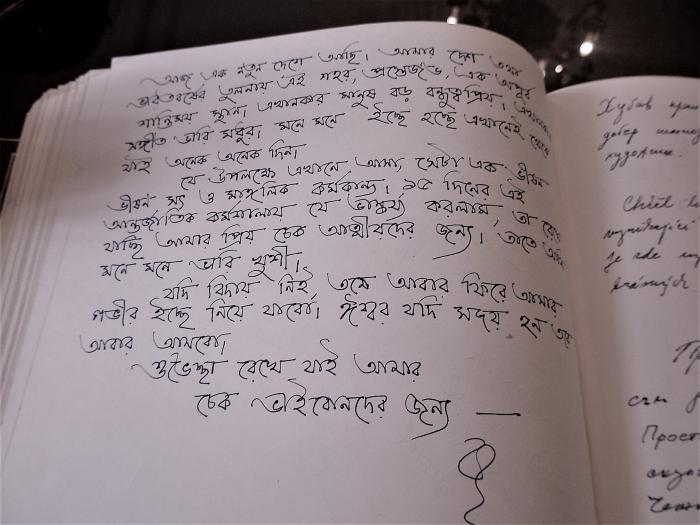 আজ এক নতুন দেশে আছি। আমার দেশ তথা
ভারতবর্ষের তুলনায় এই শহর, প্রাগৈ, এক অপূর্ব
শান্তিময় স্থান। এখানকার মানুষ বড় বন্ধুত্বপ্রিয়। এখানকার
সঙ্গীত ভারি মধুর। মনে মনে ইচ্ছে হচ্ছে এখানেই থেকে
যাই অনেক অনেক দিন।
যে উপলক্ষ্যে এখানে আসা, সেটা এক ভীষন
ভীষন সৎ ও মাঙ্গলিক কর্মকান্ড। ১৫ দিনের এই
আন্তর্জাতিক কর্মশালায় যে ভাস্কর্য্য করলাম, তা রেখে
যাচ্ছি আমার প্রিয় চেক আত্মীয়দের জন্য। তাতে আমি
মনে মনে ভারি খুশী।
যদি বিদায় নিই, তবে আবার ফিরে আসার
গভীর ইচ্ছে নিয়ে যাবো। ঈশ্বর যদি সদয় হন তবে
আবার আসবো।
শুভেচ্ছা রেখে যাই আমার
চেক ভাইবোনদের জন্য —
Хубав
добър
художник.
Chtěl
je zde
krásných
Прост